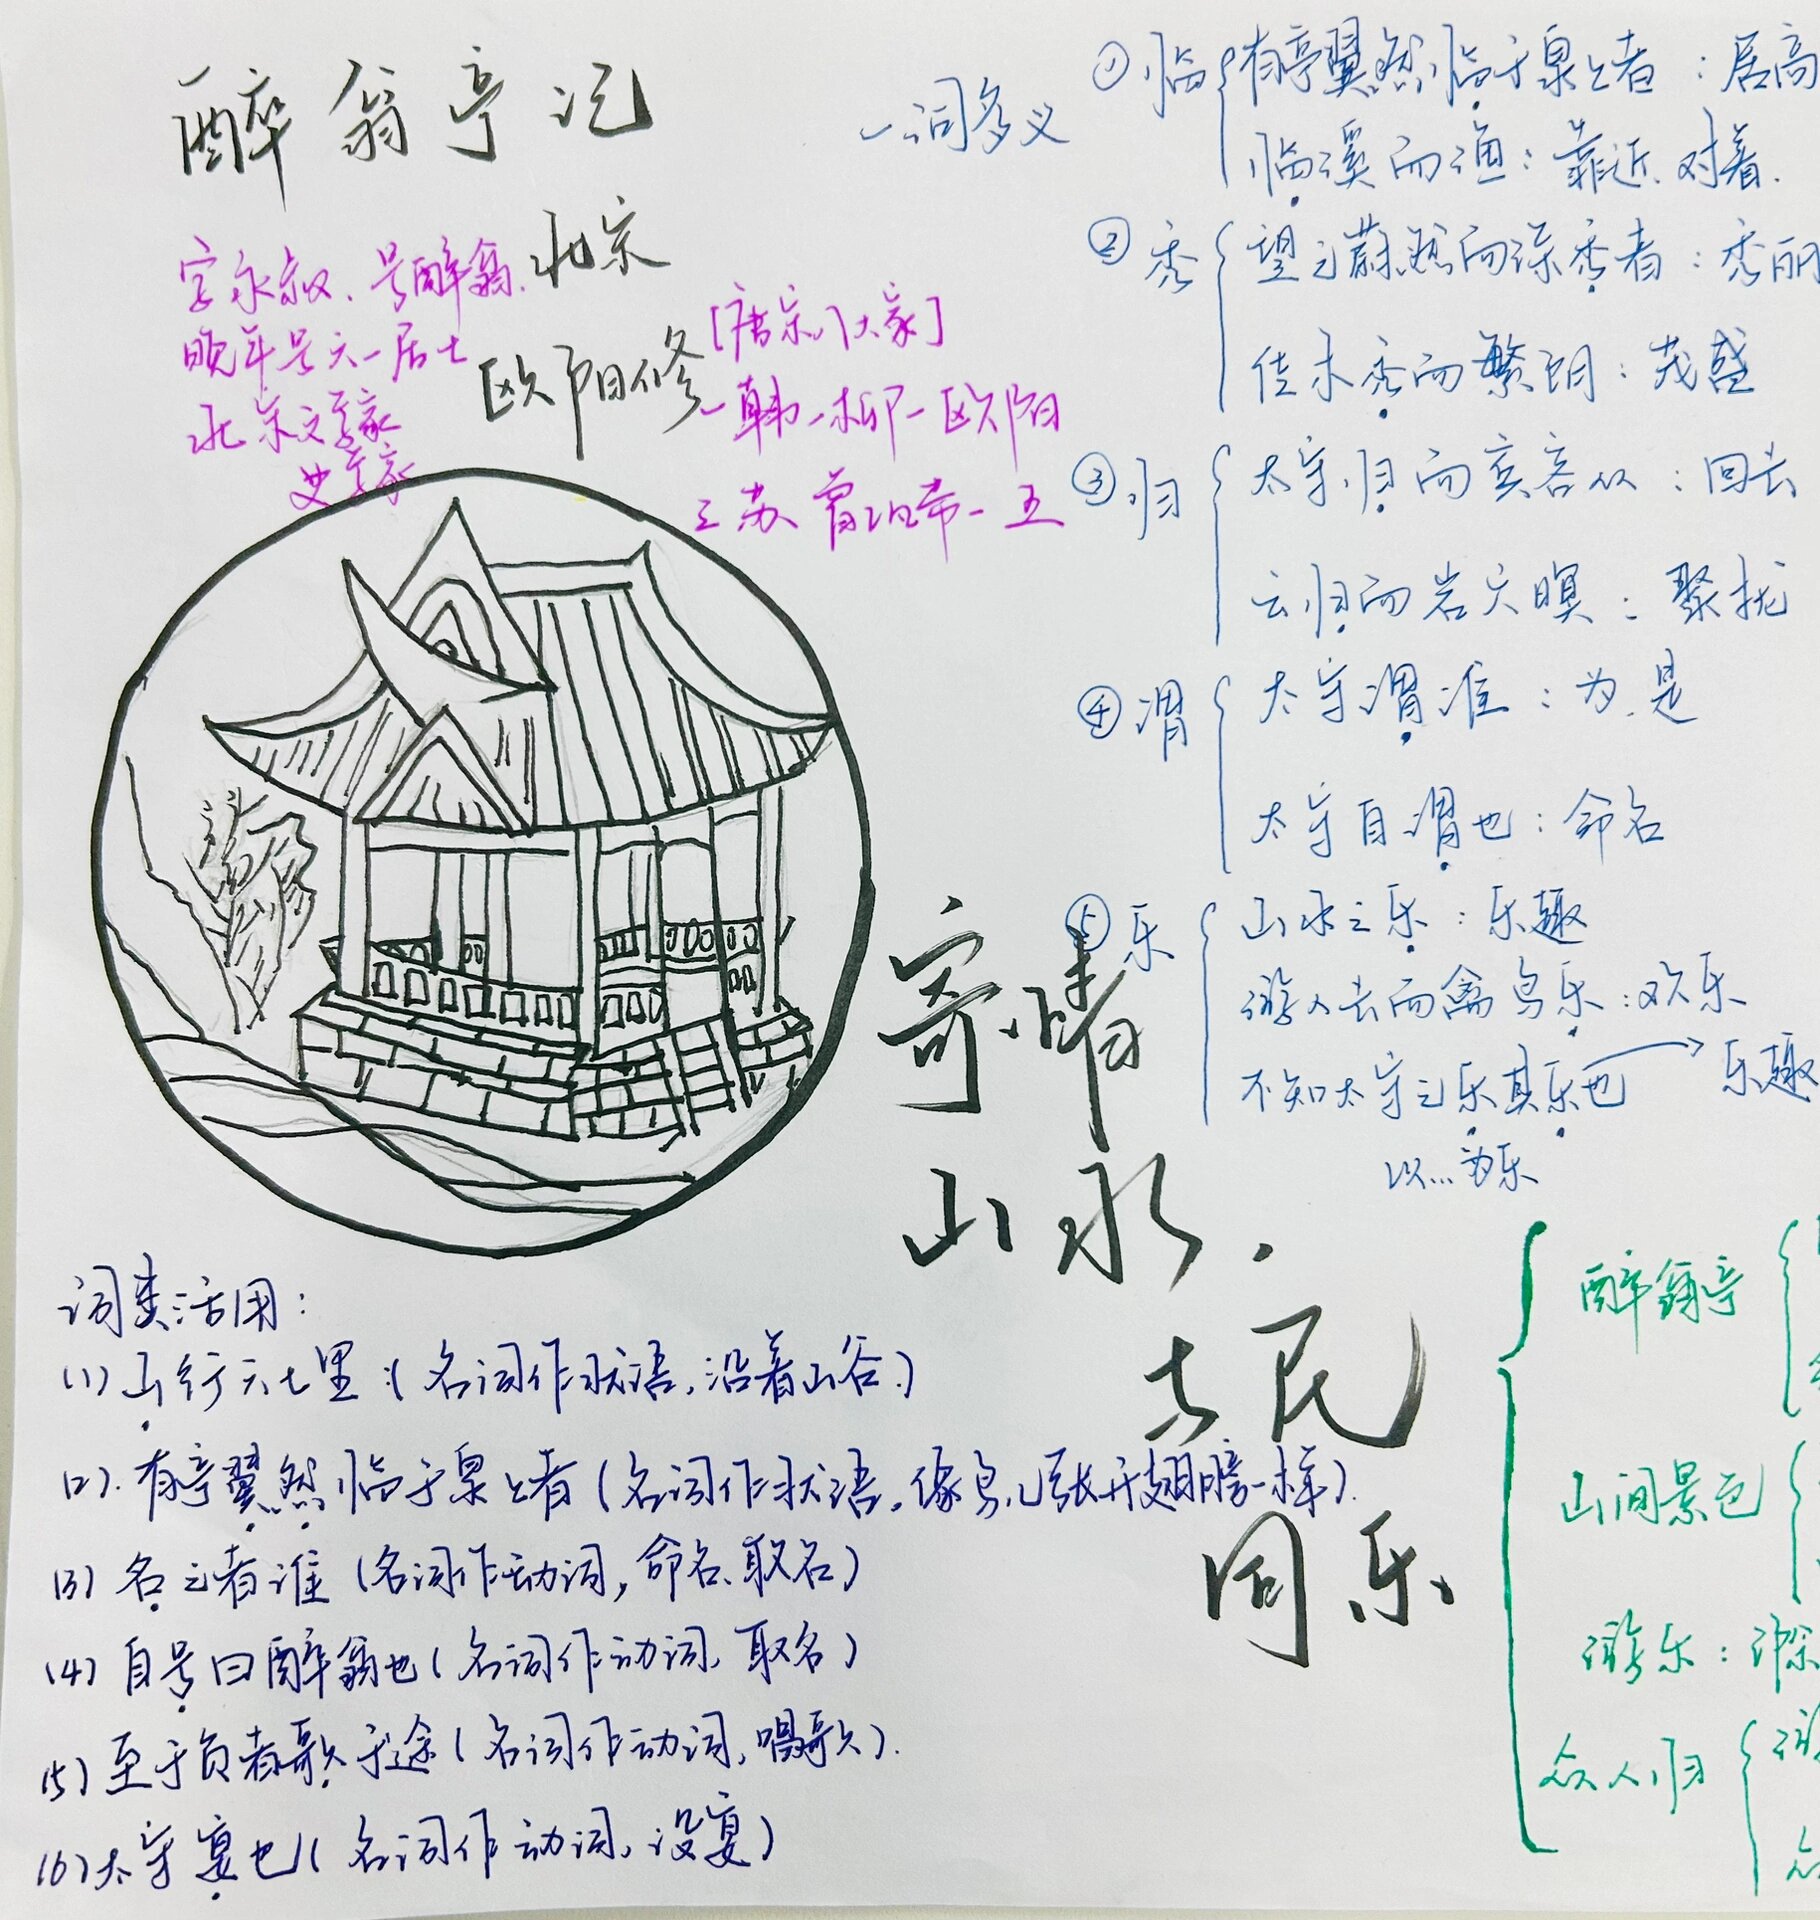 醉翁亭记
北宋
欧阳修
字永叔、号醉翁、
晚年号六一居士
北宋文学家
史学家
[唐宋八大家]
一韩一柳一欧阳
三苏曾巩带一王
一词多义
①临
有亭翼然临于泉上者：居高
临溪而渔：靠近、对着.
②秀
望之蔚然而深秀者：秀丽
佳木秀而繁阴：茂盛
③归
太守归而宾客从：回去
云归而岩穴暝：聚拢
④谓
太守谓谁：为、是
太守自谓也：命名
⑤乐
山水之乐：乐趣
游人去而禽鸟乐：欢乐
不知太守之乐其乐也→乐趣
以…为乐
寄情
山水、
与民
同乐、
词类活用：
(1)山行六七里：(名词作状语，沿着山谷.)
(2).有亭翼然临于泉上者(名词作状语，像鸟儿张开翅膀一样).
(3)名之者谁(名词作动词，命名、取名)
(4)自号曰醉翁也(名词作动词、取名)
(5)至于负者歌于途(名词作动词，唱歌).
(6)太守宴也(名词作动词、设宴)
醉翁亭
山间景色
游乐：
众人归